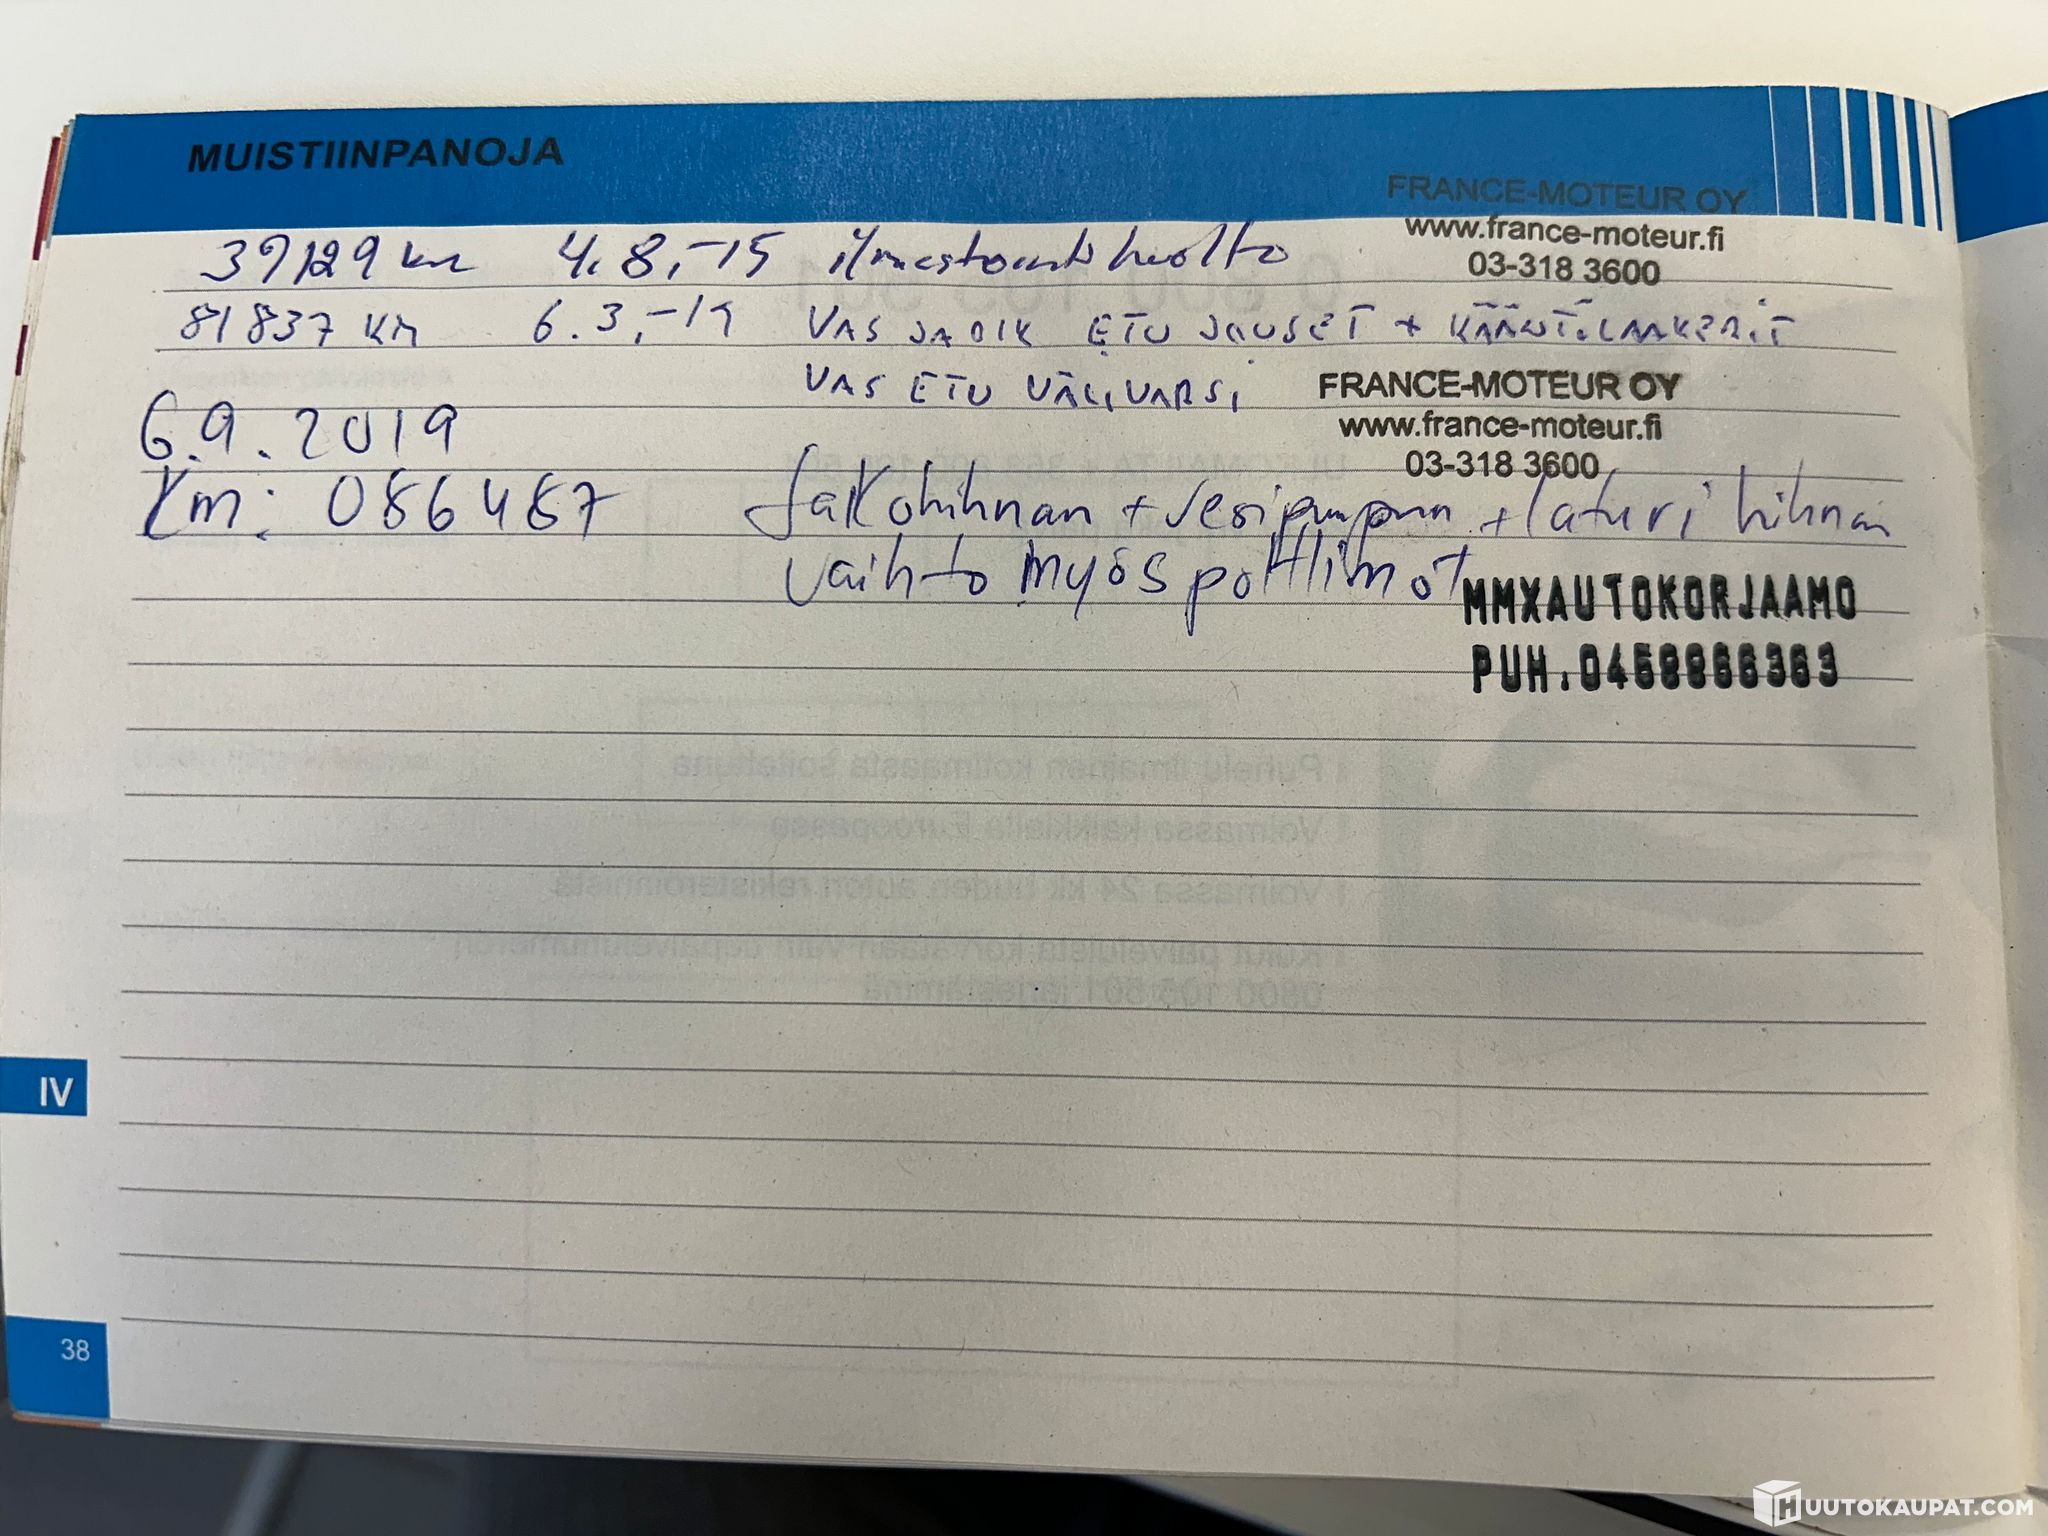 MUISTIINPANOJA
FRANCE-MOTEUR OY
www.france-moteur.fi
03-318 3600
39129 km 4.8.-15 ilmastointihuolto
81837 KM 6.3.-19 VAS JA OIK ETU JOUSET + KÄÄNTÖLAAKERIT
VAS ETU VÄLIVARSI
FRANCE-MOTEUR OY
www.france-moteur.fi
03-318 3600
6.9.2019
Km: 086487 Jakohihnan + Vesipumpun + laturi hihnan
vaihto myös polttimot
MMXAUTOKORJAAMO
PUH.0458866363
Puhelu ilmainen kotimaasta soitettuna
Voimassa kaikkialla Euroopassa
Voimassa 24 kk uuden auton rekisteröinnistä
IV
38
HUUTOKAUPAT.COM